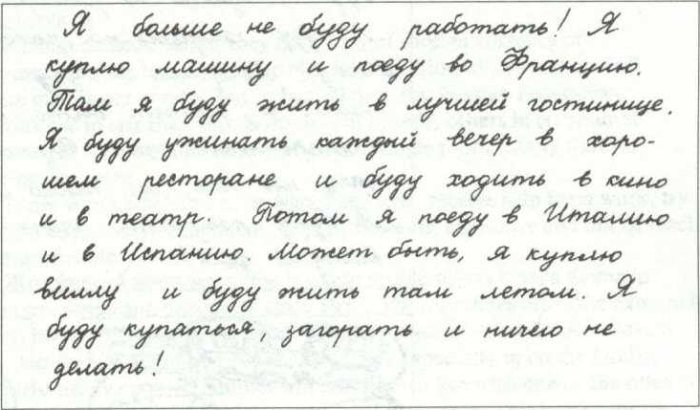 Я больше не буду работать! Я
куплю машину и поеду во Францию.
Там я буду жить в лучшей гостинице.
Я буду ужинать каждый вечер в хоро-
шем ресторане и буду ходить в кино
и в театр. Потом я поеду в Италию
и в Испанию. Может быть, я куплю
виллу и буду жить там летом. Я
буду купаться, загорать и ничего не
делать!